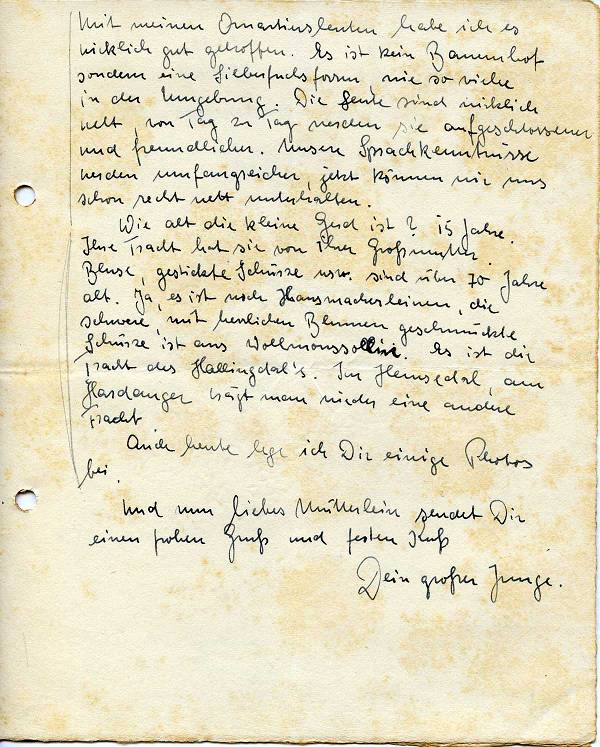 Mit meinen Quartiersleuten habe ich es
wirklich gut getroffen. Es ist kein Bauernhof
sondern eine Silberfuchsfarm, wie so viele
in der Umgebung. Die Leute sind wirklich
nett, von Tag zu Tag werden sie aufgeschlossener
und freundlicher. Unsere Sprachkenntnisse
werden umfangreicher, jetzt können wir uns
schon recht nett unterhalten.
Wie alt die kleine Gerd ist? 15 Jahre.
Ihre Tracht hat sie von ihrer Großmutter.
Bluse, gestickte Schürze usw. sind über 70 Jahre
alt. Ja, es ist noch Hausmacherleinen, die
schwere, mit herrlichen Blumen geschmückte
Schürze ist aus Wollmousselin. Es ist die
Tracht des Hallingdal's. Im Hemsedal, am
Hardanger trägt man wieder eine andere
Tracht.
Auch heute lege ich Dir einige Photos
bei.
Und nun liebes Mütterlein sendet Dir
einen frohen Gruß und festen Kuß
Dein großer Junge.